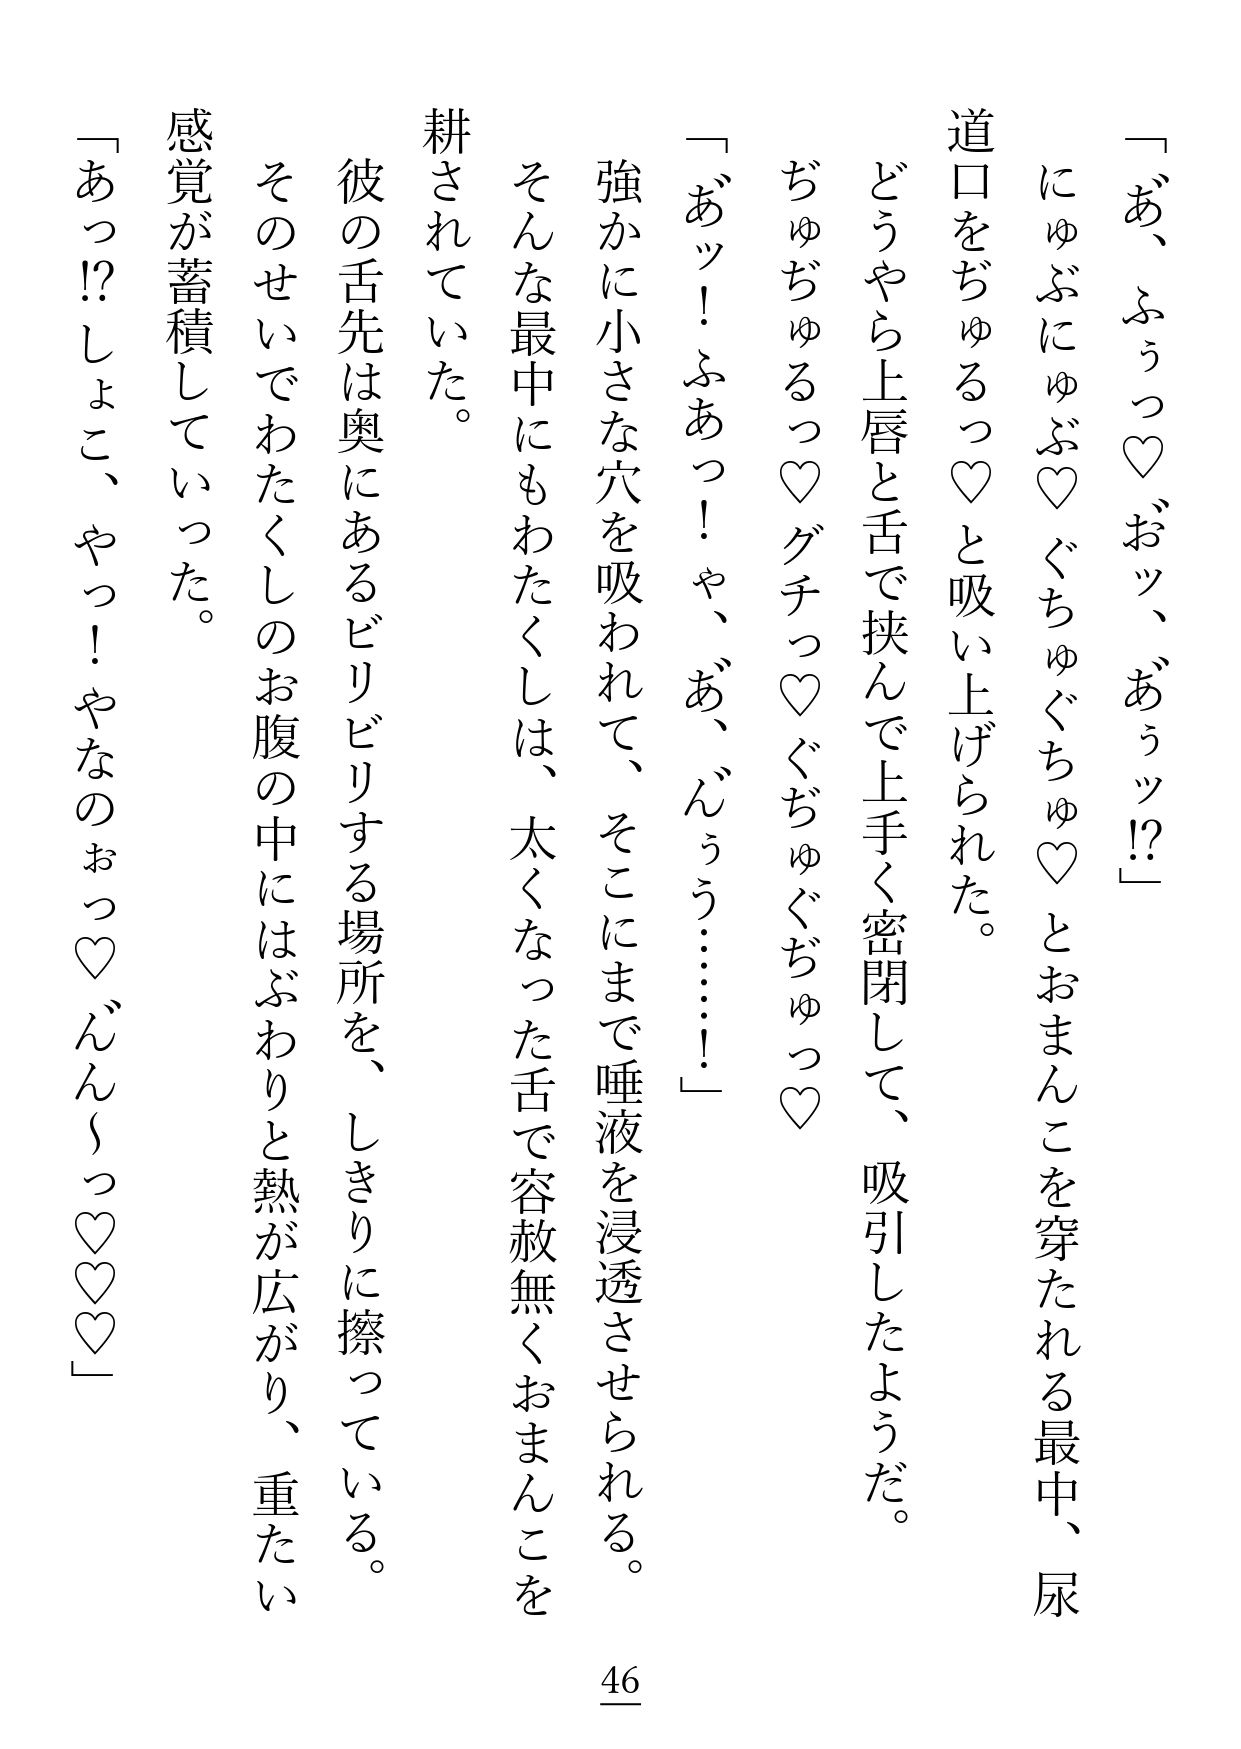 「あ゛、ふぅっ♡お゛ッ、あ゛ぅッ⁉」
にゅぶにゅぶ♡ぐちゅぐちゅ♡とおまんこを穿たれる最中、尿
道口をぢゅるっ♡と吸い上げられた。
どうやら上唇と舌で挟んで上手く密閉して、吸引したようだ。
ぢゅぢゅるっ♡グチっ♡ぐぢゅぐぢゅっ♡
「あ゛ッ！ふあっ！ゃ、あ゛、ん゛ぅう……！」
強かに小さな穴を吸われて、そこにまで唾液を浸透させられる。
そんな最中にもわたくしは、太くなった舌で容赦無くおまんこを
耕されていた。
彼の舌先は奥にあるビリビリする場所を、しきりに擦っている。
そのせいでわたくしのお腹の中にはぶわりと熱が広がり、重たい
感覚が蓄積していった。
「あっ⁉しょこ、やっ！やなのぉっ♡ん゛ん～っ♡♡♡」
46